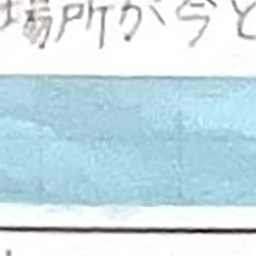 場所が今と